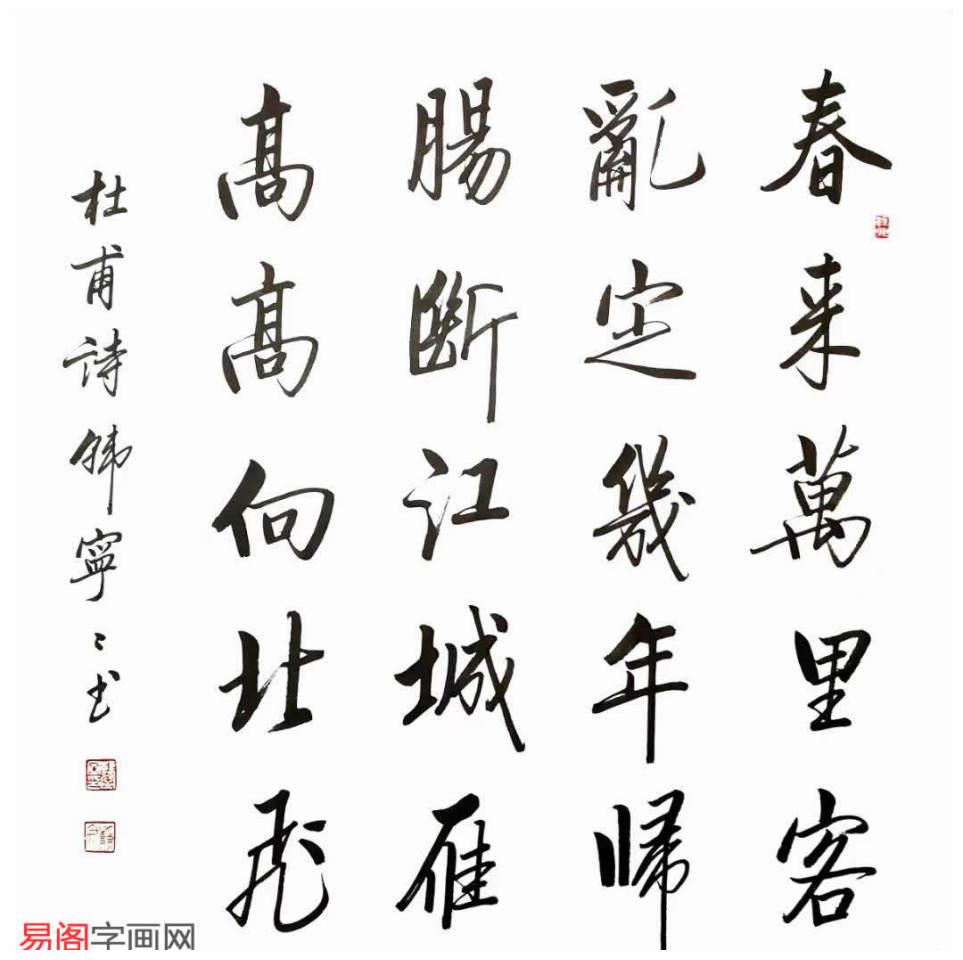 春来萬里客
亂定幾年歸
腸斷江城雁
髙髙向北飛
杜甫诗韩寧〻书
易阁字画网